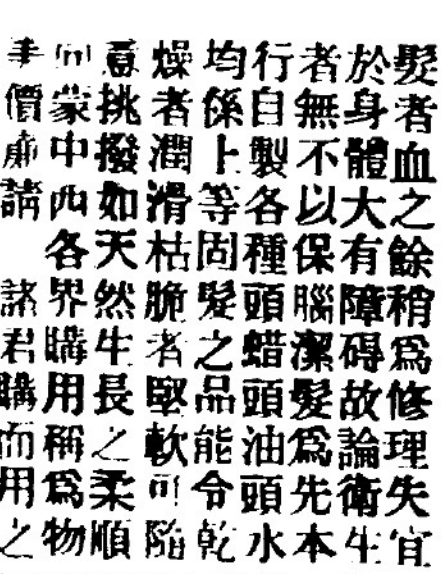 髮者血之餘稍爲修理失宜
於身體大有障碍故論衛生
者無不以保腦潔髮爲先本
行自製各種頭蜡頭油頭水
均係上等固髮之品能令乾
燥者潤滑枯脆者堅軟可隨
意挑撥如天然生長之柔順
向蒙中西各界購用稱爲物
美價廉請　諸君購而用之